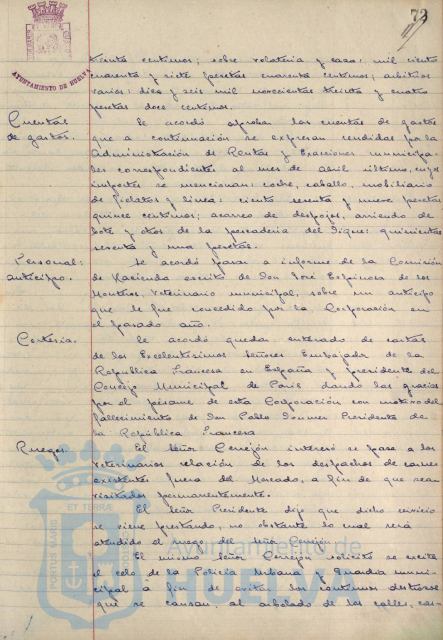 72
AYUNTAMIENTO DE HUELVA
treinta centimos; sobre volateria y caza: mil ciento
cuarenta y siete pesetas cuarenta centimos; arbitrios
varios: diez y seis mil novecientas treinta y cuatro
pesetas doce centimos.
Cuentas de gastos.
Se acordó aprobar las cuentas de gastos
que a continuación se expresan rendidas por la
Administración de Rentas y Exacciones municipa-
les correspondientes al mes de abril último, cuyos
importes se mencionan: coche, caballo, mobiliario
de fielatos y linea: ciento setenta y nueve pesetas
quince centimos; acarreo de despojos, arriendo de
bote y otros de la pescaderia del Dique: quinientas
sesenta y una pesetas.
Personal: anticipo.
Se acordó pasar a informe de la Comisión
de Hacienda escrito de Don José Espinosa de los
Monteros, Veterinario municipal, sobre un anticipo
que le fue concedido por la Corporación en
el pasado año.
Cortesia.
Se acordó quedar enterado de cartas
de los Excelentisimos Señores Embajador de la
Republica Francesa en España y presidente del
Concejo Municipal de Paris dando las gracias
por el pésame de esta Corporación con motivo del
fallecimiento de Don Pablo Doumer Presidente de
la República Francesa
Ruegos.
El Señor Cerrejón interesó se pase a los
Veterinarios relación de los despachos de carnes
existentes fuera del Mercado, a fin de que sean
visitados permanentemente.
El Señor Presidente dijo que dicho servicio
se viene prestando, no obstante lo cual será
atendido el ruego del Señor Cerrejón.
El mismo Señor Cerrejón solicitó se excite
el celo de la Policia Urbana y Guardia muni-
cipal a fin de evitar los continuos destrozos
que se causan al arbolado de las calles, cas-
PORTUS MARIS ET TERRAE
Ayuntamiento de
HUELVA